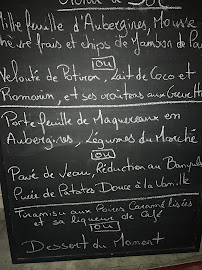 Mille feuille d'Aubergines, Mousse
chèvre frais et chips de Jambon de
ou
Velouté de Potiron, Lait de Coco et
Romarin, et ses croûtons aux
Portefeuille de Maquereaux en
Aubergines, Légumes du Marché
ou
Pavé de Veau, Réduction au Banyuls
Purée de Patates Douce à la Vanille
Tiramisu aux Poires Caramélisées
et sa liqueur de Café
ou
Dessert du Moment